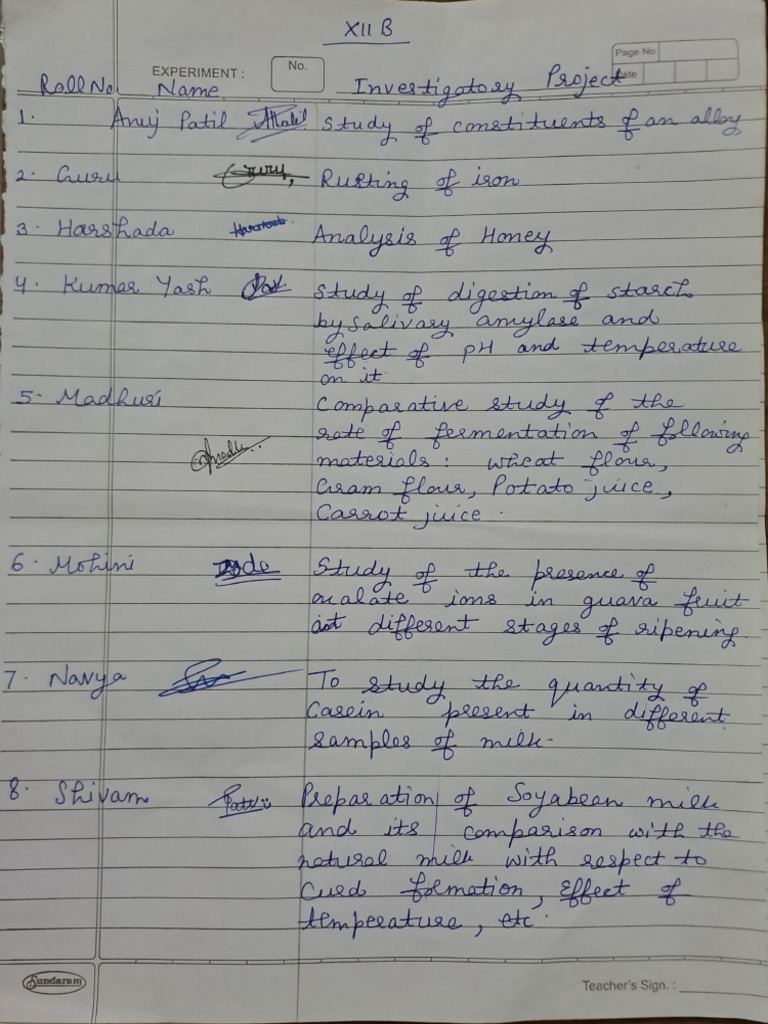 XII B
EXPERIMENT : No. Page No.
Date
Roll No Name Investigatory Project
1. Anuj Patil APatil Study of constituents of an alloy
2. Guru Guru, Rusting of iron
3. Harshada Harshada Analysis of Honey
4. Kumar Yash Study of digestion of starch
by salivary amylase and
effect of pH and temperature
on it.
5. Madhuri Comparative study of the
rate of fermentation of following
Madhu.. materials : wheat flour,
Gram flour, Potato juice,
Carrot juice.
6. Mohini Study of the presence of
oxalate ions in guava fruit
at different stages of ripening.
7. Navya To study the quantity of
Casein present in different
samples of milk.
8. Shivam Preparation of Soyabean milk
and its comparison with the
natural milk with respect to
Curd formation, Effect of
temperature, etc.
Sundaram Teacher's Sign. :